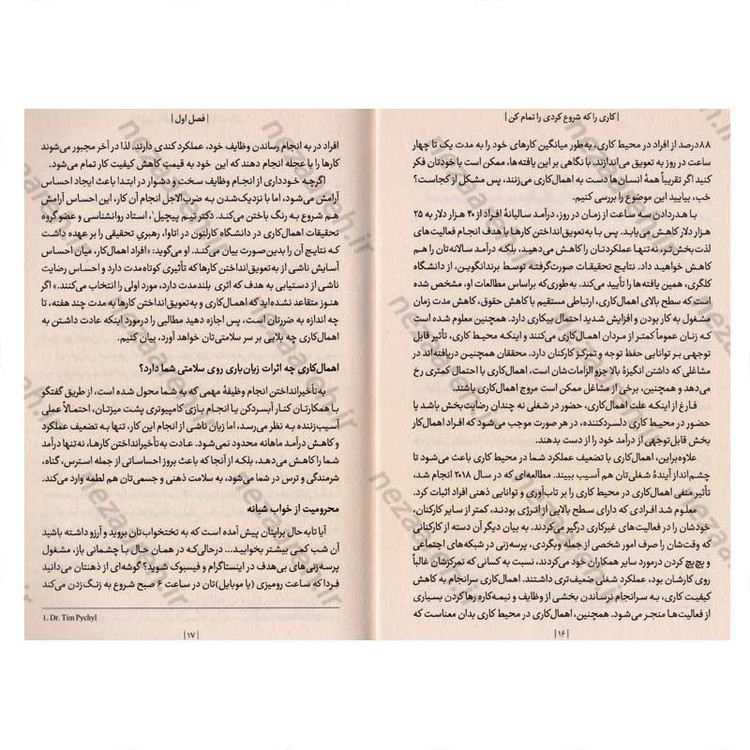 | کاری را که شروع کردی را تمام کن |
۸۸درصد از افراد در محیط کاری، به‌طور میانگین کارهای خود را به مدت یک تا چهار
ساعت در روز به تعویق می‌اندازند. با نگاهی بر این یافته‌ها، ممکن است با خودتان فکر
کنید اگر تقریباً همهٔ انسان‌ها دست به اهمال‌کاری می‌زنند، پس مشکل از کجاست؟
خب، بیایید این موضوع را بررسی کنیم.
با هدردادن سه ساعت از زمان در روز، درآمد سالیانهٔ افراد از ۴۰ هزار دلار به ۲۵
هزار دلار کاهش می‌یابد. پس با به‌تعویق‌انداختن کارها با هدف انجام فعالیت‌های
لذت‌بخش‌تر، نه‌تنها عملکردتان را کاهش می‌دهید، بلکه درآمد سالانه‌تان را هم
کاهش خواهید داد. نتایج تحقیقات صورت‌گرفته توسط برندا نگوین، از دانشگاه
کلگری، همین یافته‌ها را تأیید می‌کند. به‌طوری‌که براساس مطالعات او، مشخص شده
است که سطح بالای اهمال‌کاری، ارتباطی مستقیم با کاهش حقوق، کاهش مدت زمان
مشغول به کار بودن و افزایش شدید احتمال بیکاری دارد. همچنین معلوم شده است
که زنان عموماً کمتر از مردان اهمال‌کاری می‌کنند و اینکه محیط کاری، تأثیر قابل
توجهی بر توانایی حفظ توجه و تمرکز کارکنان دارد. محققان همچنین دریافته‌اند در
مشاغلی که داشتن انگیزهٔ بالا جزو الزامات‌شان است، اهمال‌کاری با احتمال کمتری رخ
می‌دهد و همچنین، برخی از مشاغل ممکن است مروج اهمال‌کاری باشند.
فارغ از اینکه علت اهمال‌کاری، حضور در شغلی نه چندان رضایت‌بخش باشد یا
حضور در محیط کاری دلسردکننده، در هر صورت موجب می‌شود که افراد اهمال‌کار
بخش قابل‌توجهی از درآمد خود را از دست بدهند.
علاوه‌براین، اهمال‌کاری با تضعیف عملکرد شما در محیط کاری باعث می‌شود تا
چشم‌انداز آیندهٔ شغلی‌تان هم آسیب ببیند. مطالعه‌ای که در سال ۲۰۱۸ انجام شد،
تأثیر منفی اهمال‌کاری در محیط کاری را بر تاب‌آوری و توانایی ذهنی افراد اثبات کرد.
معلوم شد افرادی که دارای سطح بالایی از انرژی بودند، کمتر از سایر کارکنان،
خودشان را در فعالیت‌های غیرکاری درگیر می‌کردند. به بیان دیگر آن دسته از کارکنانی
که وقت‌شان را صرف امور شخصی از جمله وبگردی، پرسه‌زنی در شبکه‌های اجتماعی
و پچ‌پچ کردن درمورد سایر همکاران خود می‌کردند، نسبت به کسانی که تمرکزشان غالباً
روی کارشان بود، عملکرد شغلی ضعیف‌تری داشتند. اهمال‌کاری سرانجام به کاهش
کیفیت کاری، به سرانجام نرساندن بخشی از وظایف و نیمه‌کاره رهاکردن بسیاری
از فعالیت‌ها منجر می‌شود. همچنین، اهمال‌کاری در محیط کاری بدان معناست که
| ۱۶ |
| فصل اول |
افراد در به انجام رساندن وظایف خود، عملکرد کندی دارند. لذا در آخر مجبور می‌شوند
کارها را با عجله انجام دهند که این خود به قیمتِ کاهش کیفیت کار تمام می‌شود.
اگرچه خودداری از انجام وظایف سخت و دشوار در ابتدا باعث ایجاد احساس
آرامش می‌شود، اما با نزدیک‌شدن به ضرب‌الاجل انجام آن کار، این احساس آرامش
هم شروع به رنگ باختن می‌کند. دکتر تیم پیچیل۱، استاد روانشناسی و عضو گروه
تحقیقات اهمال‌کاری در دانشگاه کارلتون در اتاوا، رهبری تحقیقی را بر عهده داشت
که نتایج آن را بدین‌صورت بیان می‌کند. او می‌گوید: «افراد اهمال‌کار، میان احساس
آسایش ناشی از به‌تعویق‌انداختن کارها که تأثیری کوتاه‌مدت دارد و احساس رضایت
ناشی از دستیابی به هدف که اثری بلندمدت دارد، مورد اولی را انتخاب می‌کنند.» اگر
هنوز متقاعد نشده‌اید که اهمال‌کاری و به‌تعویق‌انداختن کارها به مدت چند هفته، تا
چه اندازه به ضررتان است، پس اجازه دهید مطالبی را درمورد اینکه عادت داشتن به
اهمال‌کاری چه بلایی بر سر سلامتی‌تان خواهد آورد، بیان کنیم.
اهمال‌کاری چه اثرات زیان‌باری روی سلامتی شما دارد؟
به‌تأخیرانداختن انجام وظیفهٔ مهمی که به شما محول شده است، از طریق گفتگو
با همکارتان کنار آبسردکن یا انجام بازی کامپیوتری پشت میزتان، احتمالاً عملی
آسیب‌زننده به نظر می‌رسد، اما زیان ناشی از انجام این کار، تنها به تضعیف عملکرد
و کاهش درآمد ماهانه محدود نمی‌شود. عادت به‌تأخیرانداختن کارها، نه‌تنها درآمد
شما را کاهش می‌دهد، بلکه از آنجا که باعث بروز احساساتی از جمله استرس، گناه،
شرمندگی و ترس در شما می‌شود، به سلامت ذهنی و جسمی‌تان هم لطمه وارد می‌کند.
محرومیت از خواب شبانه
آیا تا به حال برایتان پیش آمده است که به تختخواب‌تان بروید و آرزو داشته باشید
آن شب کمی بیشتر بخوابید... درحالی‌که در همان حال با چشمانی باز، مشغول
پرسه‌زنی‌های بی‌هدف در اینستاگرام و فیسبوک شوید؟ گوشه‌ای از ذهنتان می‌دانید
فردا که ساعت رومیزی (یا موبایل)تان در ساعت ۶ صبح شروع به زنگ‌زدن می‌کند
1. Dr. Tim Pychyl
| ۱۷ |